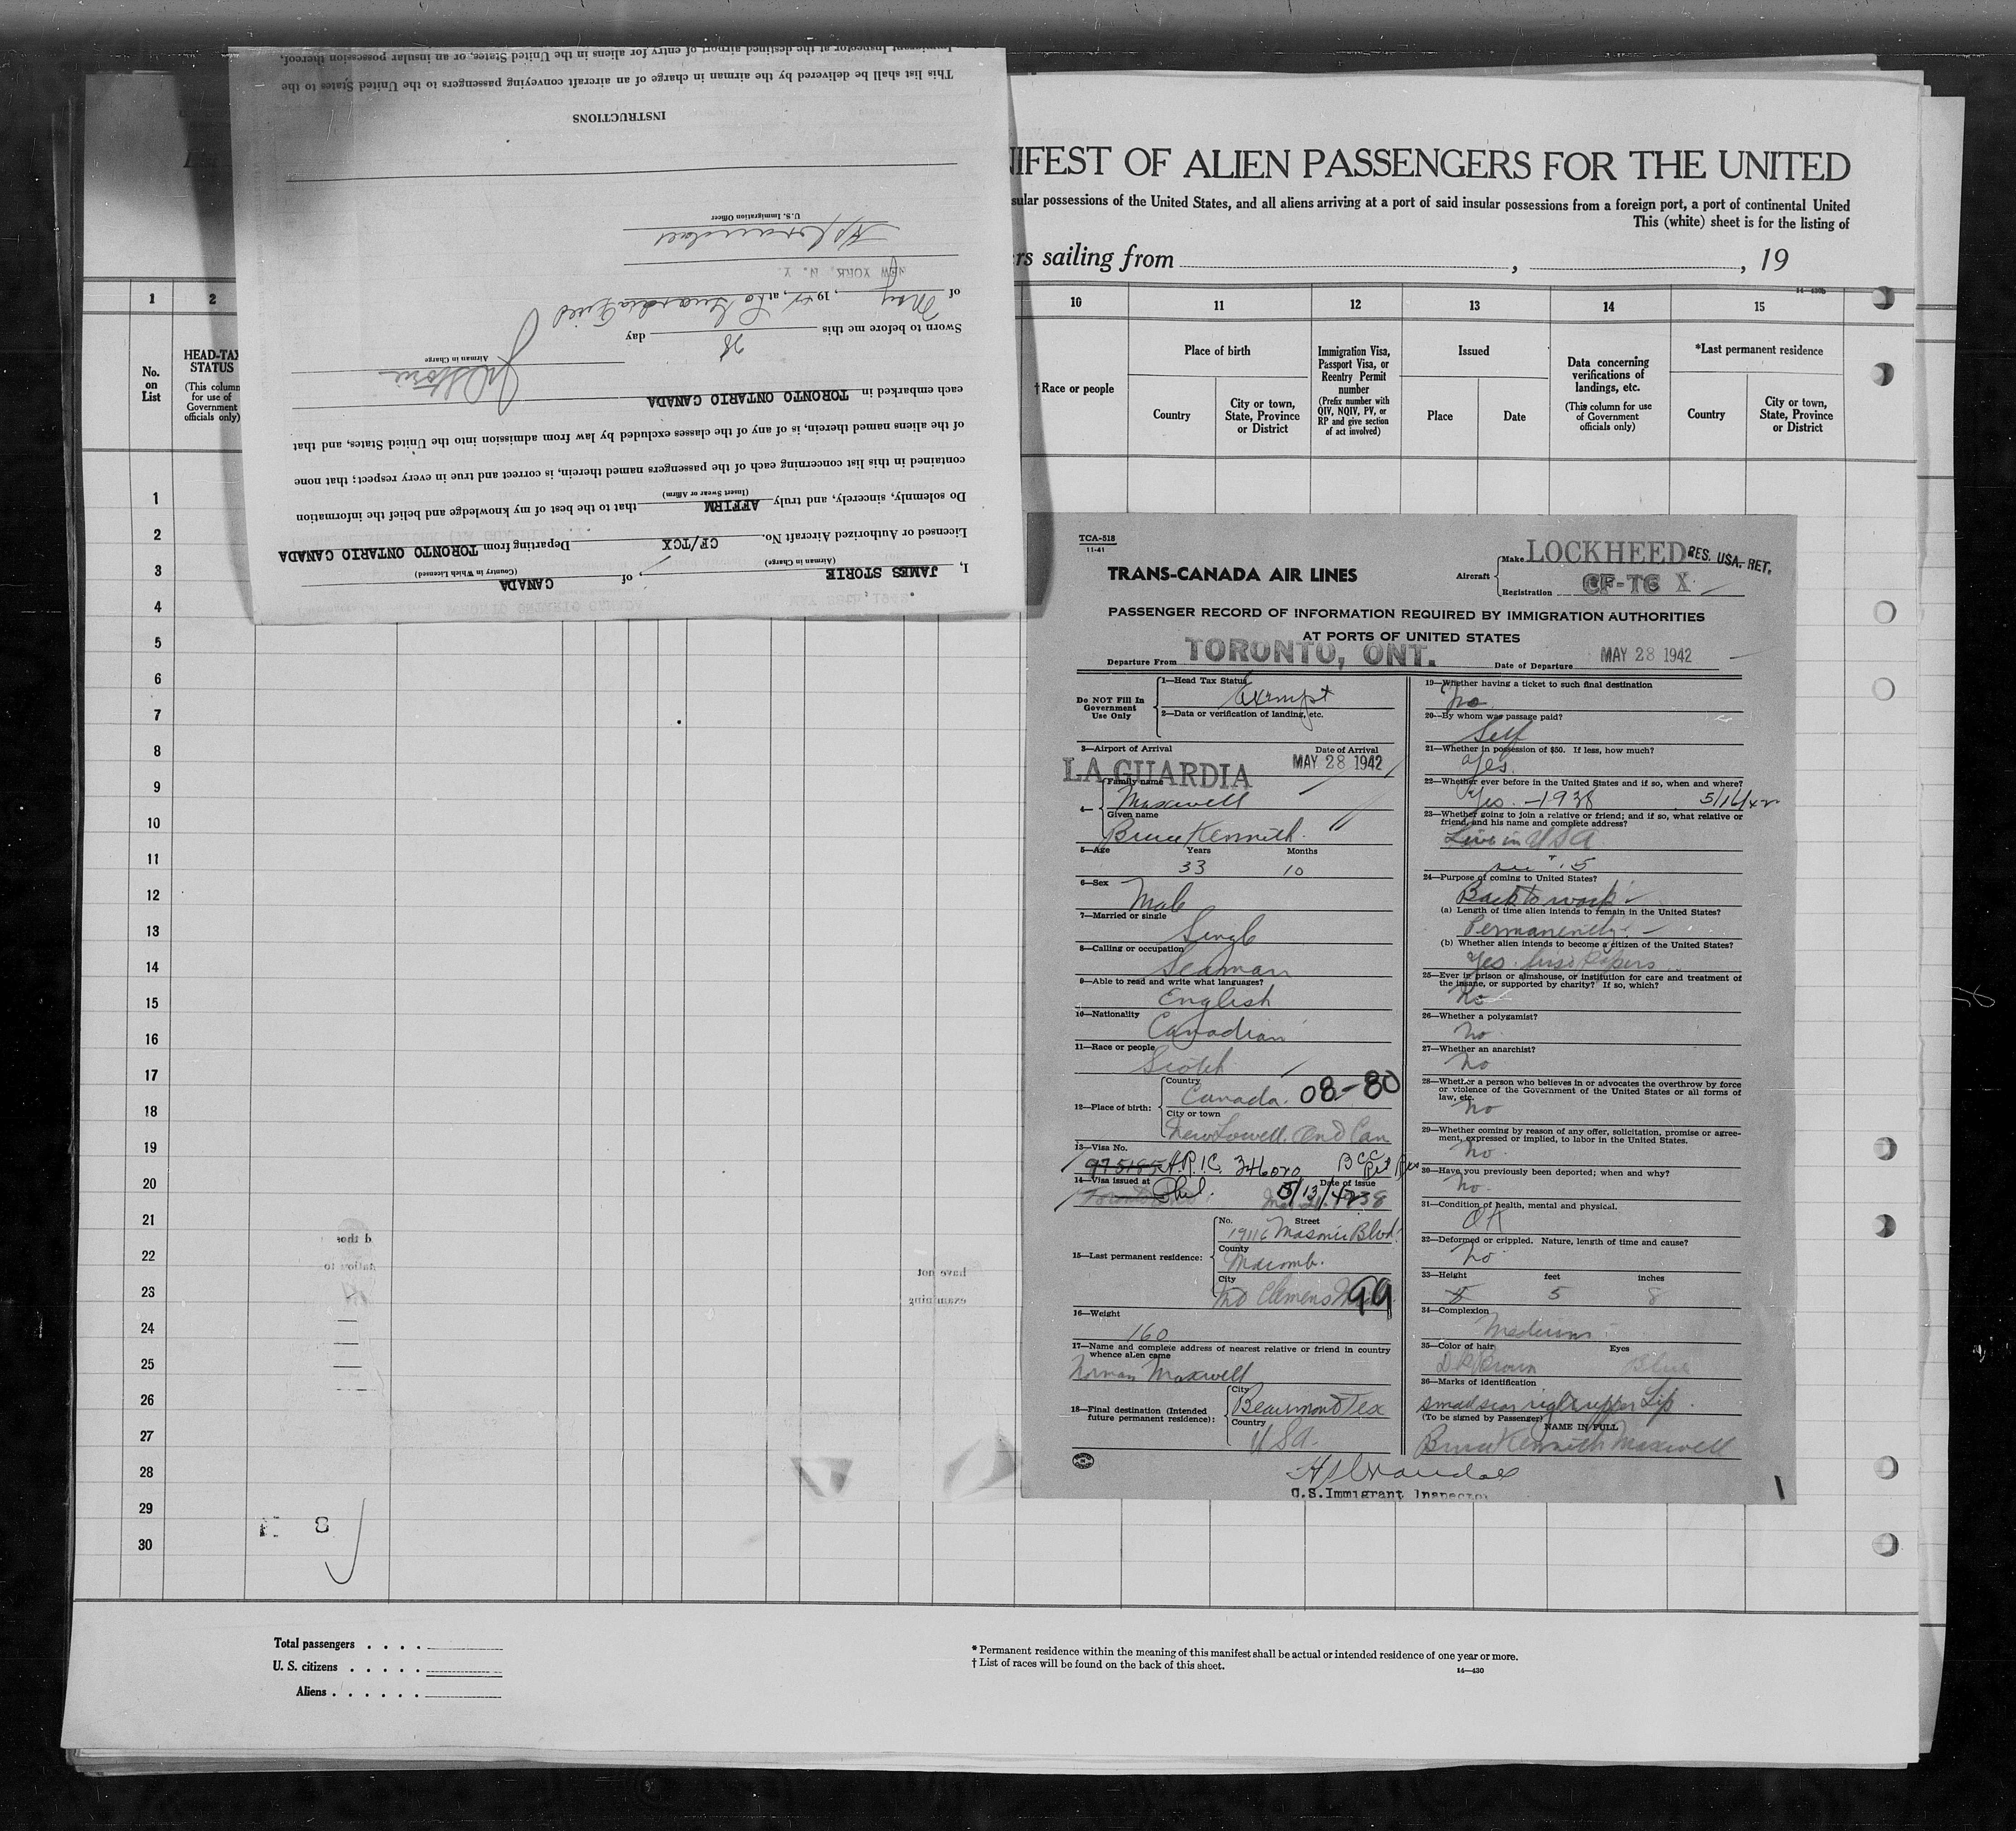 INSTRUCTIONS
This list shall be delivered by the airman in charge of an aircraft conveying passengers to the United States to the
Immigrant Inspector at the destined airport of entry for aliens in the United States, or an insular possession thereof,
I, JAMES STORIE, of CANADA
(Airman in Charge) (Country in Which Licensed)
Licensed or Authorized Aircraft No. CF/TCX Departing from TORONTO ONTARIO CANADA
Do solemnly, sincerely, and truly AFFIRM that to the best of my knowledge and belief the information
(Insert Swear or Affirm)
contained in this list concerning each of the passengers named therein, is correct and true in every respect; that none
of the aliens named therein, is of any of the classes excluded by law from admission into the United States, and that
each embarked in TORONTO ONTARIO CANADA
Airman in Charge
Sworn to before me this 28 day
of May, 1942, at La Guardia Field
NEW YORK, N. Y.
U. S. Immigration Officer
NIFEST OF ALIEN PASSENGERS FOR THE UNITED
sular possessions of the United States, and all aliens arriving at a port of said insular possessions from a foreign port, a port of continental United
This (white) sheet is for the listing of
rs sailing from , , 19
1 2 10 11 12 13 14 15
No. on List
HEAD-TAX STATUS
(This column for use of Government officials only)
†Race or people
Place of birth
Country
City or town, State, Province or District
Immigration Visa, Passport Visa, or Reentry Permit number
(Prefix number with QIV, NQIV, PV, or RP and give section of act involved)
Issued
Place
Date
Data concerning verifications of landings, etc.
(This column for use of Government officials only)
*Last permanent residence
Country
City or town, State, Province or District
1
2
3
4
5
6
7
8
9
10
11
12
13
14
15
16
17
18
19
20
21
22
23
24
25
26
27
28
29
30
have not
examining
TCA-518
11-41
TRANS-CANADA AIR LINES
Aircraft
Make LOCKHEED RES. USA. RET.
Registration CF-TC X
PASSENGER RECORD OF INFORMATION REQUIRED BY IMMIGRATION AUTHORITIES
AT PORTS OF UNITED STATES
Departure From TORONTO, ONT. Date of Departure MAY 28 1942
Do NOT Fill In Government Use Only
1—Head Tax Status Exempt
2—Data or verification of landing, etc.
3—Airport of Arrival Date of Arrival
LA GUARDIA MAY 28 1942
4— Family name
Maxwell
Given name
Bruce Kenneth.
5—Age Years Months
33 10
6—Sex
Male
7—Married or single
Single
8—Calling or occupation
Seaman
9—Able to read and write what languages?
English
10—Nationality
Canadian
11—Race or people
Scotch
12—Place of birth:
Country
Canada. 08-80
City or town
New Lowell. Ont Can
13—Visa No.
975185 A.R.I.C. 346020
14—Visa issued at Date of issue
Toronto Phil. 5/13/42
15—Last permanent residence:
No. Street
19116 Masonic Blvd.
County
Macomb.
City
Mt Clemens 99
16—Weight
160
17—Name and complete address of nearest relative or friend in country
whence alien came
Norman Maxwell
18—Final destination (Intended future permanent residence):
City
Beaumont Tex
Country
USA.
19—Whether having a ticket to such final destination
No
20—By whom was passage paid?
Self
21—Whether in possession of $50. If less, how much?
Yes.
22—Whether ever before in the United States and if so, when and where?
Yes. - 1938 5/16/42
23—Whether going to join a relative or friend; and if so, what relative or
friend, and his name and complete address?
Live in USA
15
24—Purpose of coming to United States?
Back to work
(a) Length of time alien intends to remain in the United States?
Permanently.
(b) Whether alien intends to become a citizen of the United States?
Yes. first Papers
25—Ever in prison or almshouse, or institution for care and treatment of
the insane, or supported by charity? If so, which?
No
26—Whether a polygamist?
No
27—Whether an anarchist?
No
28—Whether a person who believes in or advocates the overthrow by force
or violence of the Government of the United States or all forms of
law, etc.
No
29—Whether coming by reason of any offer, solicitation, promise or agree-
ment, expressed or implied, to labor in the United States.
No.
30—Have you previously been deported; when and why?
No.
31—Condition of health, mental and physical.
OK
32—Deformed or crippled. Nature, length of time and cause?
No
33—Height feet inches
5 8
34—Complexion
Medium
35—Color of hair Eyes
Dk Brown Blue
36—Marks of identification
small scar right upper Lip.
(To be signed by Passenger) NAME IN FULL
Bruce Kenneth Maxwell
U.S. Immigrant Inspector
Total passengers . . . .
U. S. citizens . . . . .
Aliens . . . . . .
* Permanent residence within the meaning of this manifest shall be actual or intended residence of one year or more.
† List of races will be found on the back of this sheet.
14—430